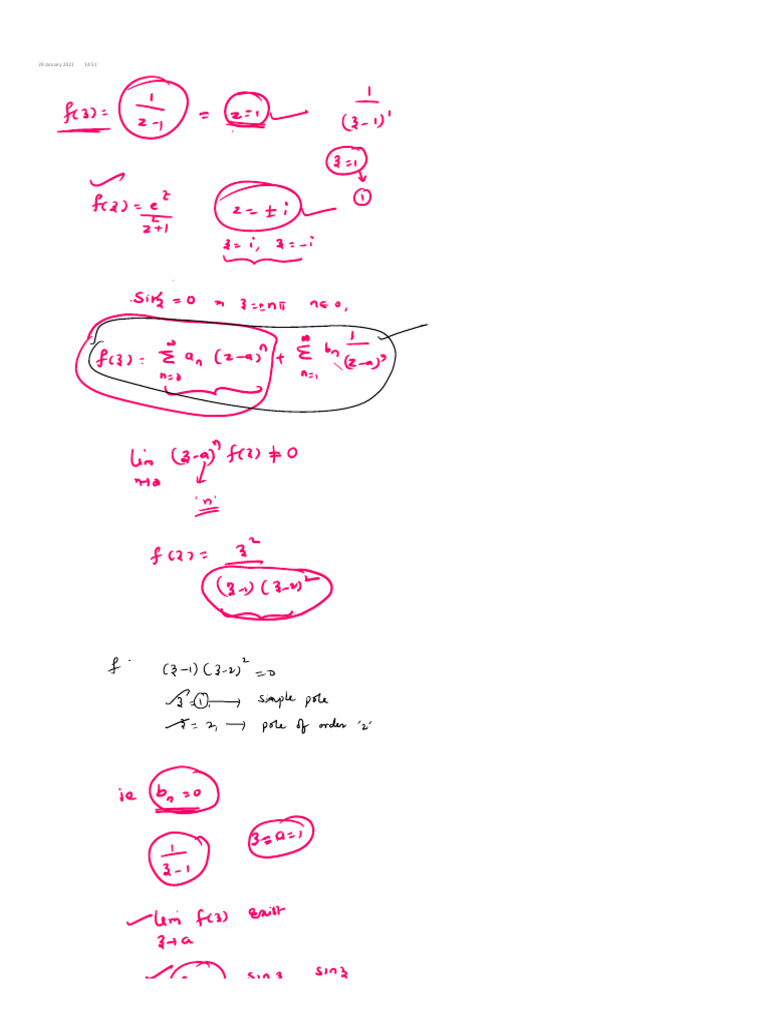 29 January 2021 14:51
f(z) = 1/(z-1) = z=1 1/(z-1)¹
z=1
①
f(z) = e^z/(z²+1) z = ± i
z = i, z = -i
sin z = 0 z = ± nπ n = 0,
f(z) = ∑_{n=0}^{∞} a_n (z-a)^n + ∑_{n=1}^{∞} b_n 1/(z-a)^n
lim_{z→a} (z-a)^n f(z) ≠ 0
'n'
f(z) = z²/((z-1)(z-2)²)
f (z-1)(z-2)² = 0
z = 1, → simple pole
z = 2, → pole of order '2'
ie b_n = 0
1/(z-1) z = a = 1
lim_{z→a} f(z) exist
sin z sin z